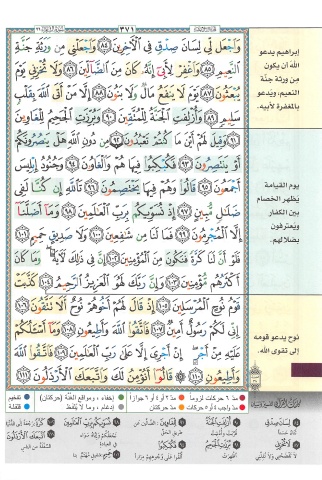 ٣٧١
وَٱجۡعَل لِّي لِسَانَ صِدۡقٖ فِي ٱلۡأٓخِرِينَ ٨٤ وَٱجۡعَلۡنِي مِن وَرَثَةِ جَنَّةِ
ٱلنَّعِيمِ ٨٥ وَٱغۡفِرۡ لِأَبِيٓ إِنَّهُۥ كَانَ مِنَ ٱلضَّآلِّينَ ٨٦ وَلَا تُخۡزِنِي يَوۡمَ
يُبۡعَثُونَ ٨٧ يَوۡمَ لَا يَنفَعُ مَالٞ وَلَا بَنُونَ ٨٨ إِلَّا مَنۡ أَتَى ٱللَّهَ بِقَلۡبٖ
سَلِيمٖ ٨٩ وَأُزۡلِفَتِ ٱلۡجَنَّةُ لِلۡمُتَّقِينَ ٩٠ وَبُرِّزَتِ ٱلۡجَحِيمُ لِلۡغَاوِينَ
٩١ وَقِيلَ لَهُمۡ أَيۡنَ مَا كُنتُمۡ تَعۡبُدُونَ ٩٢ مِن دُونِ ٱللَّهِ هَلۡ يَنصُرُونَكُمۡ
أَوۡ يَنتَصِرُونَ ٩٣ فَكُبۡكِبُواْ فِيهَا هُمۡ وَٱلۡغَاوُۥنَ ٩٤ وَجُنُودُ إِبۡلِيسَ
أَجۡمَعُونَ ٩٥ قَالُواْ وَهُمۡ فِيهَا يَخۡتَصِمُونَ ٩٦ تَٱللَّهِ إِن كُنَّا لَفِي
ضَلَٰلٖ مُّبِينٍ ٩٧ إِذۡ نُسَوِّيكُم بِرَبِّ ٱلۡعَٰلَمِينَ ٩٨ وَمَآ أَضَلَّنَآ
إِلَّا ٱلۡمُجۡرِمُونَ ٩٩ فَمَا لَنَا مِن شَٰفِعِينَ ١٠٠ وَلَا صَدِيقٍ حَمِيمٖ ١٠١
فَلَوۡ أَنَّ لَنَا كَرَّةٗ فَنَكُونَ مِنَ ٱلۡمُؤۡمِنِينَ ١٠٢ إِنَّ فِي ذَٰلِكَ لَأٓيَةٗۖ وَمَا كَانَ
أَكۡثَرُهُم مُّؤۡمِنِينَ ١٠٣ وَإِنَّ رَبَّكَ لَهُوَ ٱلۡعَزِيزُ ٱلرَّحِيمُ ١٠٤ كَذَّبَتۡ
قَوۡمُ نُوحٍ ٱلۡمُرۡسَلِينَ ١٠٥ إِذۡ قَالَ لَهُمۡ أَخُوهُمۡ نُوحٌ أَلَا تَتَّقُونَ ١٠٦
إِنِّي لَكُمۡ رَسُولٌ أَمِينٞ ١٠٧ فَٱتَّقُواْ ٱللَّهَ وَأَطِيعُونِ ١٠٨ وَمَآ أَسۡـَٔلُكُمۡ
عَلَيۡهِ مِنۡ أَجۡرٍۖ إِنۡ أَجۡرِيَ إِلَّا عَلَىٰ رَبِّ ٱلۡعَٰلَمِينَ ١٠٩ فَٱتَّقُواْ ٱللَّهَ
وَأَطِيعُونِ ١١٠ قَالُوٓاْ أَنُؤۡمِنُ لَكَ وَٱتَّبَعَكَ ٱلۡأَرۡذَلُونَ ١١١
إبراهيم يدعو
الله أن يكون
من ورثة جنّة
النعيم، ويدعو
بالمغفرة لأبيه.
يوم القيامة
يظهر الخصام
بين الكفار
ويعترفون
بضلالهم.
نوح يدعو قومه
إلى تقوى الله.
مدّ ٦ حركات لزوماً
مدّ ٢ أو ٤ أو ٦ جوازاً
إخفاء، ومواقع الغنّة (حركتان)
تفخيم
مدّ واجب ٤ أو ٥ حركات
مدّ حركتان
إدغام، وما لا يُلفظ
قلقلة